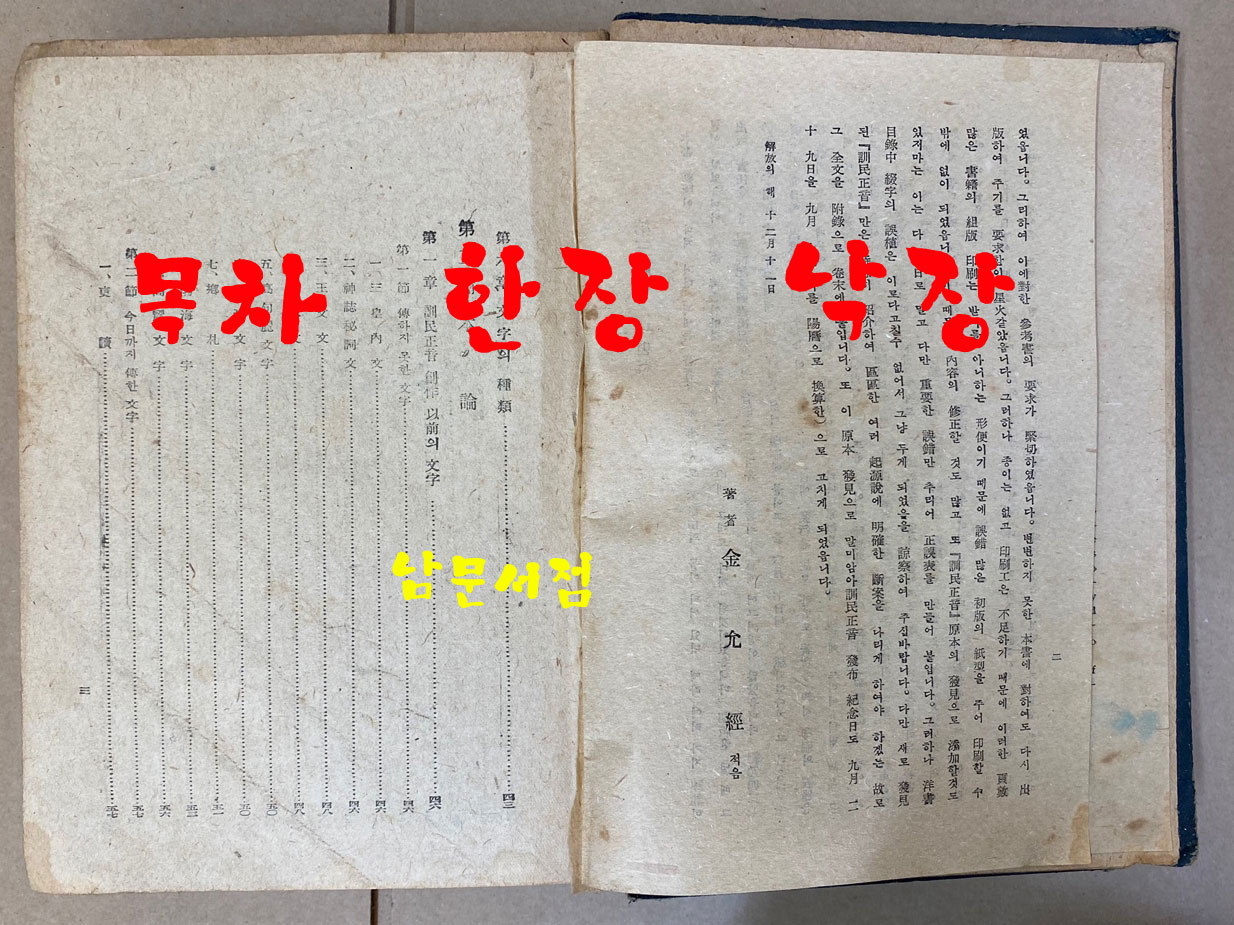 목차 한장 낙장
남문서점
二
었읍니다。그리하여 이에對한 參考書의 要求가 緊切하였읍니다。변변하지 못한 本書에 對하여도 다시 出
版하여 주기를 要求함이 星火같았읍니다。그러하나 종이는 없고 印刷工은 不足하기 때문에 이러한
많은 書籍의 組版 印刷는 아니하는 形便이기 때문에 誤錯 많은 初版의 紙型을 주어 印刷할 수
밖에 없이 되었읍니다 內容의 修正할 것도 많고 또『訓民正音』原本의 發見으로 添加할것도
있지마는 이는 다 日로 밀고 다만 重要한 誤錯만 추리어 正誤表를 만들어 붙입니다。그러하나 洋書
目錄中 綴字의 誤植은 이로다고칠수 없어서 그냥 두게 되었음을 諒察하여 주십바랍니다。다만 새로 發見
된『訓民正音』만은 紹介하여 區區한 여러 起源說에 明確한 斷案을 나리게 하여야 하겠는 故로
그 全文을 附錄으로 卷末에 붙입니다。또 이 原本 發見으로 말미암아訓民正音 發布 紀念日도 九月 二
十九日을 九月 를 陽曆으로 換算한)으로 고치게 되었읍니다。
解放의 해 十二月 十一日
著者 金允經 적음
文字의 種類 四三
第 本論
第一章 訓民正音 創作 以前의 文字 四六
第一節 傳하지 못한 文字 四六
一、三皇內文 四六
二、神誌秘詞文 四六
三、王文文 四八
文字 四八
五、高句麗文字 五〇
文字 五〇
七、鄕札 五一
海文字 五三
文字 五六
第二節 今日까지 傳한 文字 五七
一、吏讀 五七
三